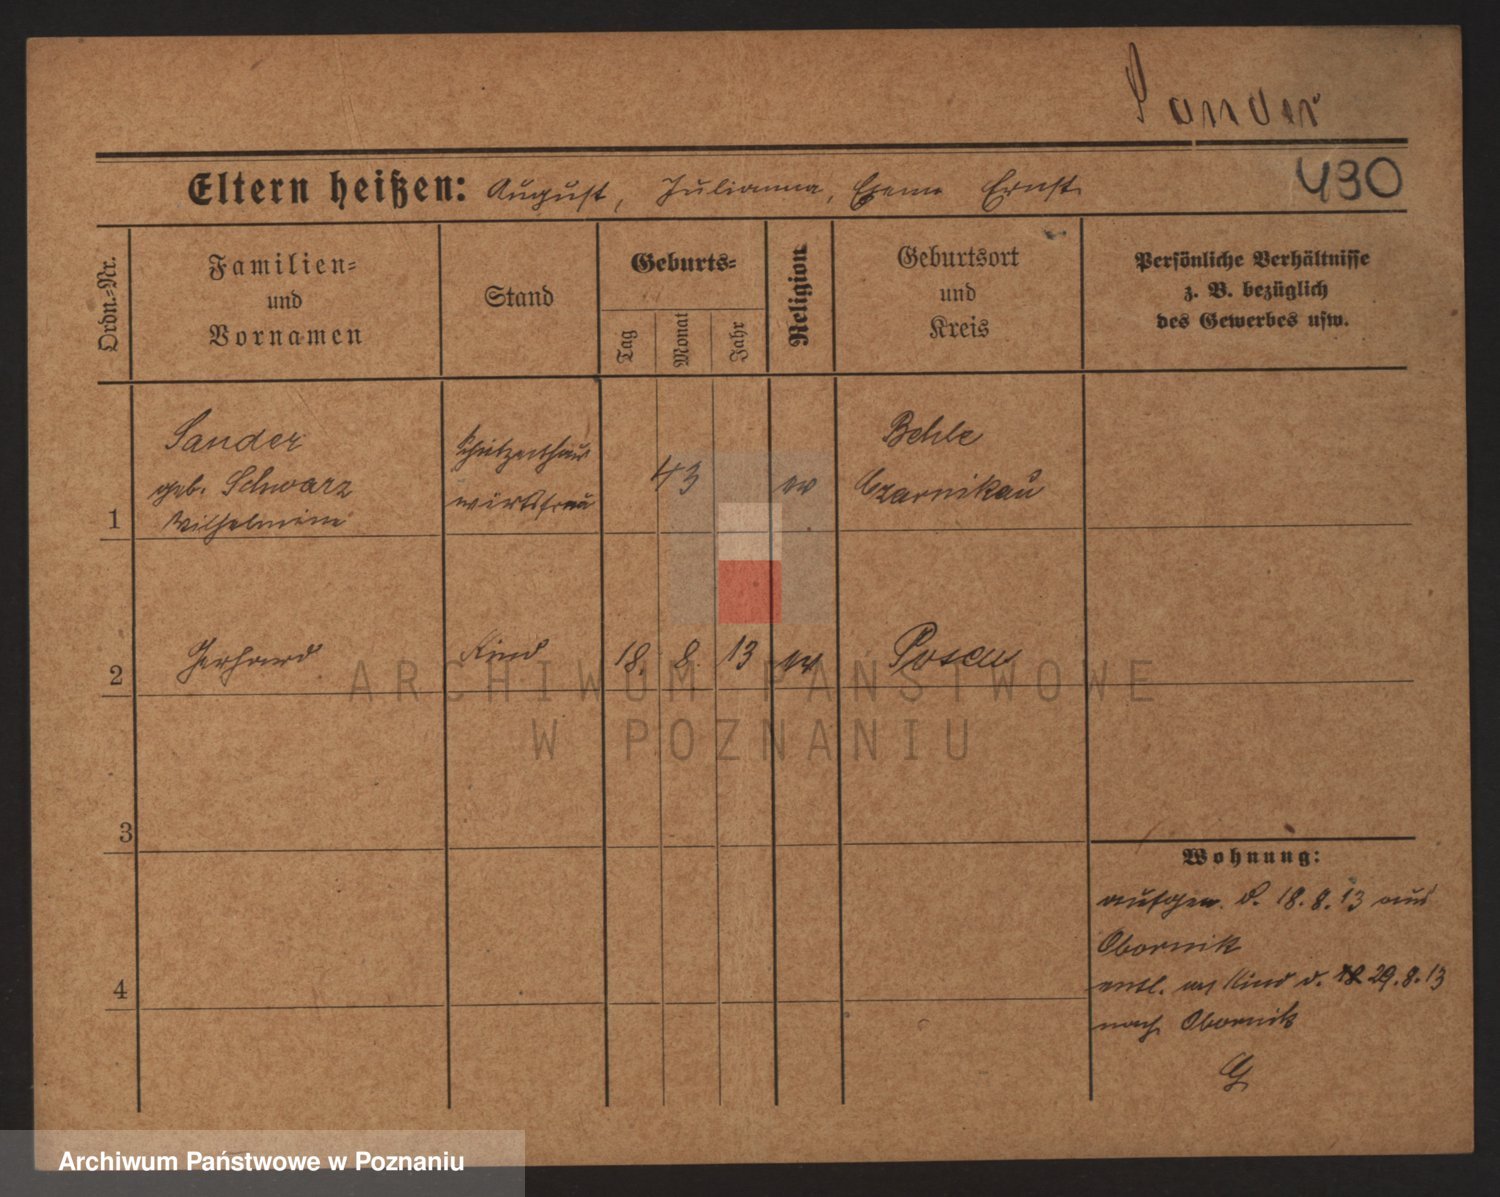 Sander
430
Eltern heißen: August, Julianna, Ehem Ernst
Ordn.-Nr.
Familien-
und
Vornamen
Stand
Geburts-
Tag
Monat
Jahr
Religion
Geburtsort
und
Kreis
Persönliche Verhältnisse
z. B. bezüglich
des Gewerbes usw.
1
Sander
geb. Schwarz
Wilhelmine
Schützenhaus
wirtsfrau
43
ev
Behle
Czarnikau
2
Gerhard
Kind
18. 8. 13
ev
Posen
ARCHIWUM PAŃSTWOWE
W POZNANIU
3
4
Wohnung:
aufgen. d. 18. 8. 13 aus
Obornik
entl. Kind d. 29. 8. 13
nach Obornik
Archiwum Państwowe w Poznaniu